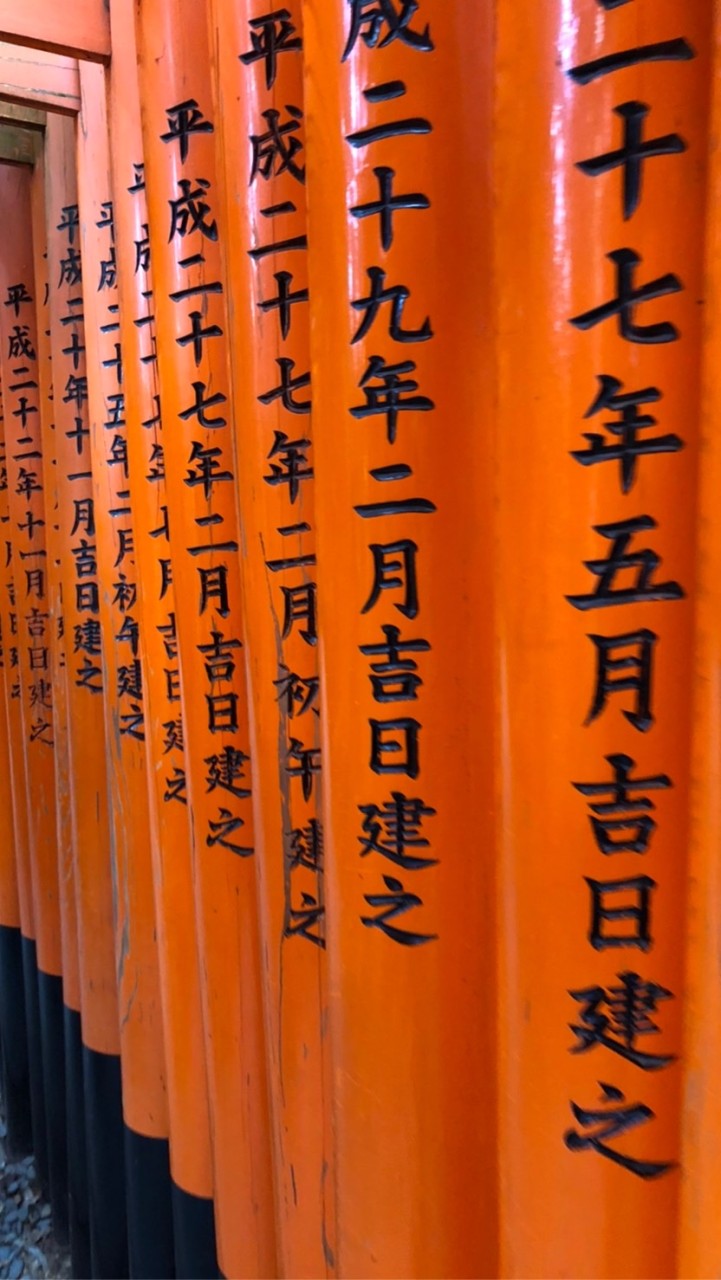 二十七年五月吉日建之
成二十九年二月吉日建之
平成二十七年二月初午建之
平成二十七年二月吉日建之
平成二十五年二月初午建之
平成二十年十一月吉日建之
平成二十二年十一月吉日建之